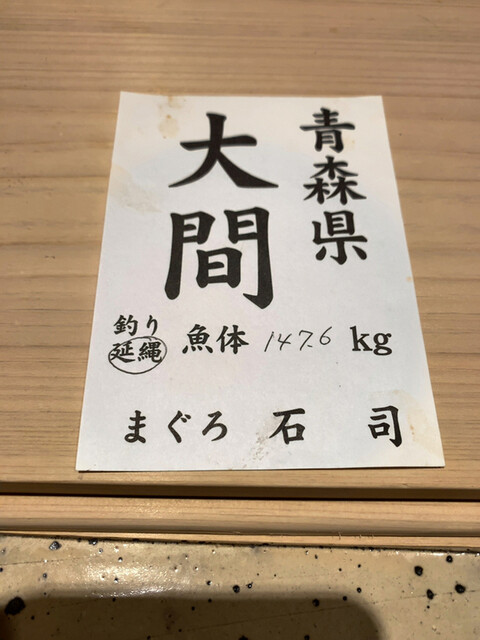 青森県
大間
釣り
延縄
魚体 147.6 kg
まぐろ 石司